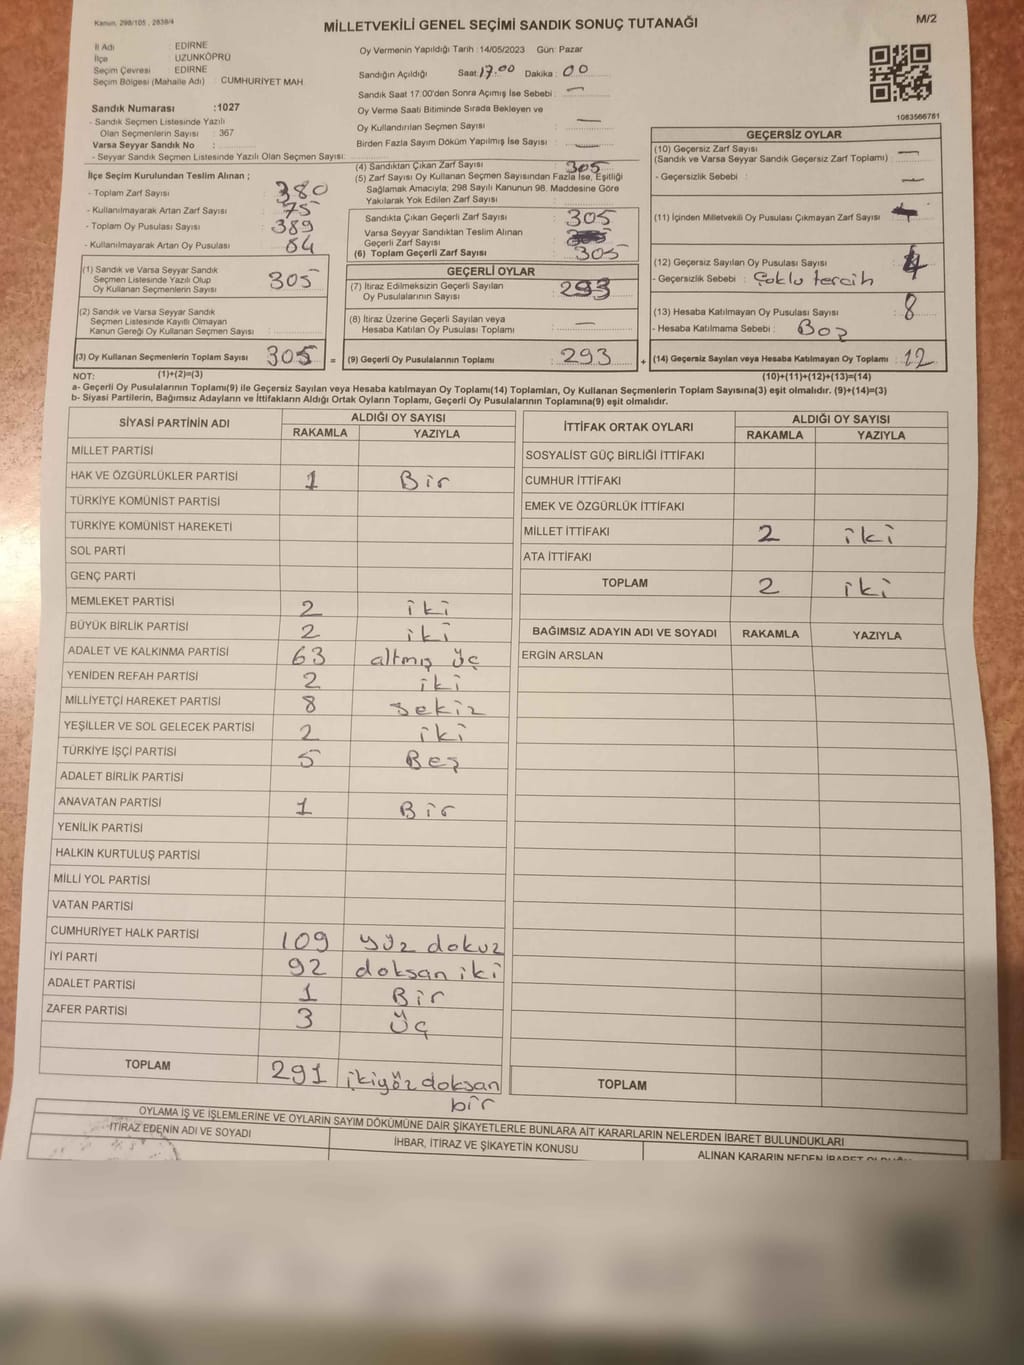 Kanun, 298/105 , 2839/4
MİLLETVEKİLİ GENEL SEÇİMİ SANDIK SONUÇ TUTANAĞI
M/2
İl Adı : EDİRNE
İlçe : UZUNKÖPRÜ
Seçim Çevresi : EDİRNE
Seçim Bölgesi (Mahalle Adı) : CUMHURİYET MAH.
Sandık Numarası :1027
- Sandık Seçmen Listesinde Yazılı
Olan Seçmenlerin Sayısı : 367
Varsa Seyyar Sandık No :
- Seyyar Sandık Seçmen Listesinde Yazılı Olan Seçmen Sayısı:
Oy Vermenin Yapıldığı Tarih : 14/05/2023 Gün: Pazar
Sandığın Açıldığı Saat 17.00 Dakika : 00
Sandık Saat 17.00'den Sonra Açımış İse Sebebi : —
Oy Verme Saati Bitiminde Sırada Bekleyen ve
Oy Kullandırılan Seçmen Sayısı —
Birden Fazla Sayım Döküm Yapılmış İse Sayısı : —
1083566761
İlçe Seçim Kurulundan Teslim Alınan ;
- Toplam Zarf Sayısı 380
- Kullanılmayarak Artan Zarf Sayısı 75
- Toplam Oy Pusulası Sayısı 389
- Kullanılmayarak Artan Oy Pusulası 84
(1) Sandık ve Varsa Seyyar Sandık
Seçmen Listesinde Yazılı Olup
Oy Kullanan Seçmenlerin Sayısı 305
(2) Sandık ve Varsa Seyyar Sandık
Seçmen Listesinde Kayıtlı Olmayan
Kanun Gereği Oy Kullanan Seçmen Sayısı :
(3) Oy Kullanan Seçmenlerin Toplam Sayısı 305 =
(4) Sandıktan Çıkan Zarf Sayısı : 305
(5) Zarf Sayısı Oy Kullanan Seçmen Sayısından Fazla İse, Eşitliği
Sağlamak Amacıyla, 298 Sayılı Kanunun 98. Maddesine Göre
Yakılarak Yok Edilen Zarf Sayısı :
Sandıkta Çıkan Geçerli Zarf Sayısı : 305
Varsa Seyyar Sandıktan Teslim Alınan
Geçerli Zarf Sayısı
(6) Toplam Geçerli Zarf Sayısı : 305
GEÇERLİ OYLAR
(7) İtiraz Edilmeksizin Geçerli Sayılan
Oy Pusulalarının Sayısı : 293
(8) İtiraz Üzerine Geçerli Sayılan veya
Hesaba Katılan Oy Pusulası Toplamı —
(9) Geçerli Oy Pusulalarının Toplamı : 293 +
GEÇERSİZ OYLAR
(10) Geçersiz Zarf Sayısı
(Sandık ve Varsa Seyyar Sandık Geçersiz Zarf Toplamı) : —
- Geçersizlik Sebebi : —
(11) İçinden Milletvekili Oy Pusulası Çıkmayan Zarf Sayısı :
(12) Geçersiz Sayılan Oy Pusulası Sayısı : 4
- Geçersizlik Sebebi : Çoklu tercih
(13) Hesaba Katılmayan Oy Pusulası Sayısı : 8
- Hesaba Katılmama Sebebi : Boş
(14) Geçersiz Sayılan veya Hesaba Katılmayan Oy Toplamı : 12
NOT: (1)+(2)=(3)
(10)+(11)+(12)+(13)=(14)
a- Geçerli Oy Pusulalarının Toplamı(9) ile Geçersiz Sayılan veya Hesaba katılmayan Oy Toplam(14) Toplamları, Oy Kullanan Seçmenlerin Toplam Sayısına(3) eşit olmalıdır. (9)+(14)=(3)
b- Siyasi Partilerin, Bağımsız Adayların ve İttifakların Aldığı Ortak Oyların Toplamı, Geçerli Oy Pusulalarının Toplamına(9) eşit olmalıdır.
SİYASİ PARTİNİN ADI ALDIĞI OY SAYISI
RAKAMLA YAZIYLA
MİLLET PARTİSİ
HAK VE ÖZGÜRLÜKLER PARTİSİ 1 Bir
TÜRKİYE KOMÜNİST PARTİSİ
TÜRKİYE KOMÜNİST HAREKETİ
SOL PARTİ
GENÇ PARTİ
MEMLEKET PARTİSİ 2 iki
BÜYÜK BİRLİK PARTİSİ 2 iki
ADALET VE KALKINMA PARTİSİ 63 altmış üç
YENİDEN REFAH PARTİSİ 2 iki
MİLLİYETÇİ HAREKET PARTİSİ 8 sekiz
YEŞİLLER VE SOL GELECEK PARTİSİ 2 iki
TÜRKİYE İŞÇİ PARTİSİ 5 Beş
ADALET BİRLİK PARTİSİ
ANAVATAN PARTİSİ 1 Bir
YENİLİK PARTİSİ
HALKIN KURTULUŞ PARTİSİ
MİLLİ YOL PARTİSİ
VATAN PARTİSİ
CUMHURİYET HALK PARTİSİ 109 yüz dokuz
İYİ PARTİ 92 doksan iki
ADALET PARTİSİ 1 Bir
ZAFER PARTİSİ 3 Üç
TOPLAM 291 ikiyüz doksan
bir
İTTİFAK ORTAK OYLARI ALDIĞI OY SAYISI
RAKAMLA YAZIYLA
SOSYALİST GÜÇ BİRLİĞİ İTTİFAKI
CUMHUR İTTİFAKI
EMEK VE ÖZGÜRLÜK İTTİFAKI
MİLLET İTTİFAKI 2 iki
ATA İTTİFAKI
TOPLAM 2 iki
BAĞIMSIZ ADAYIN ADI VE SOYADI RAKAMLA YAZIYLA
ERGİN ARSLAN
TOPLAM
OYLAMA İŞ VE İŞLEMLERİNE VE OYLARIN SAYIM DÖKÜMÜNE DAİR ŞİKAYETLERLE BUNLARA AİT KARARLARIN NELERDEN İBARET BULUNDUKLARI
İTİRAZ EDENİN ADI VE SOYADI İHBAR, İTİRAZ VE ŞİKAYETİN KONUSU ALINAN KARARIN NEDEN İBARET